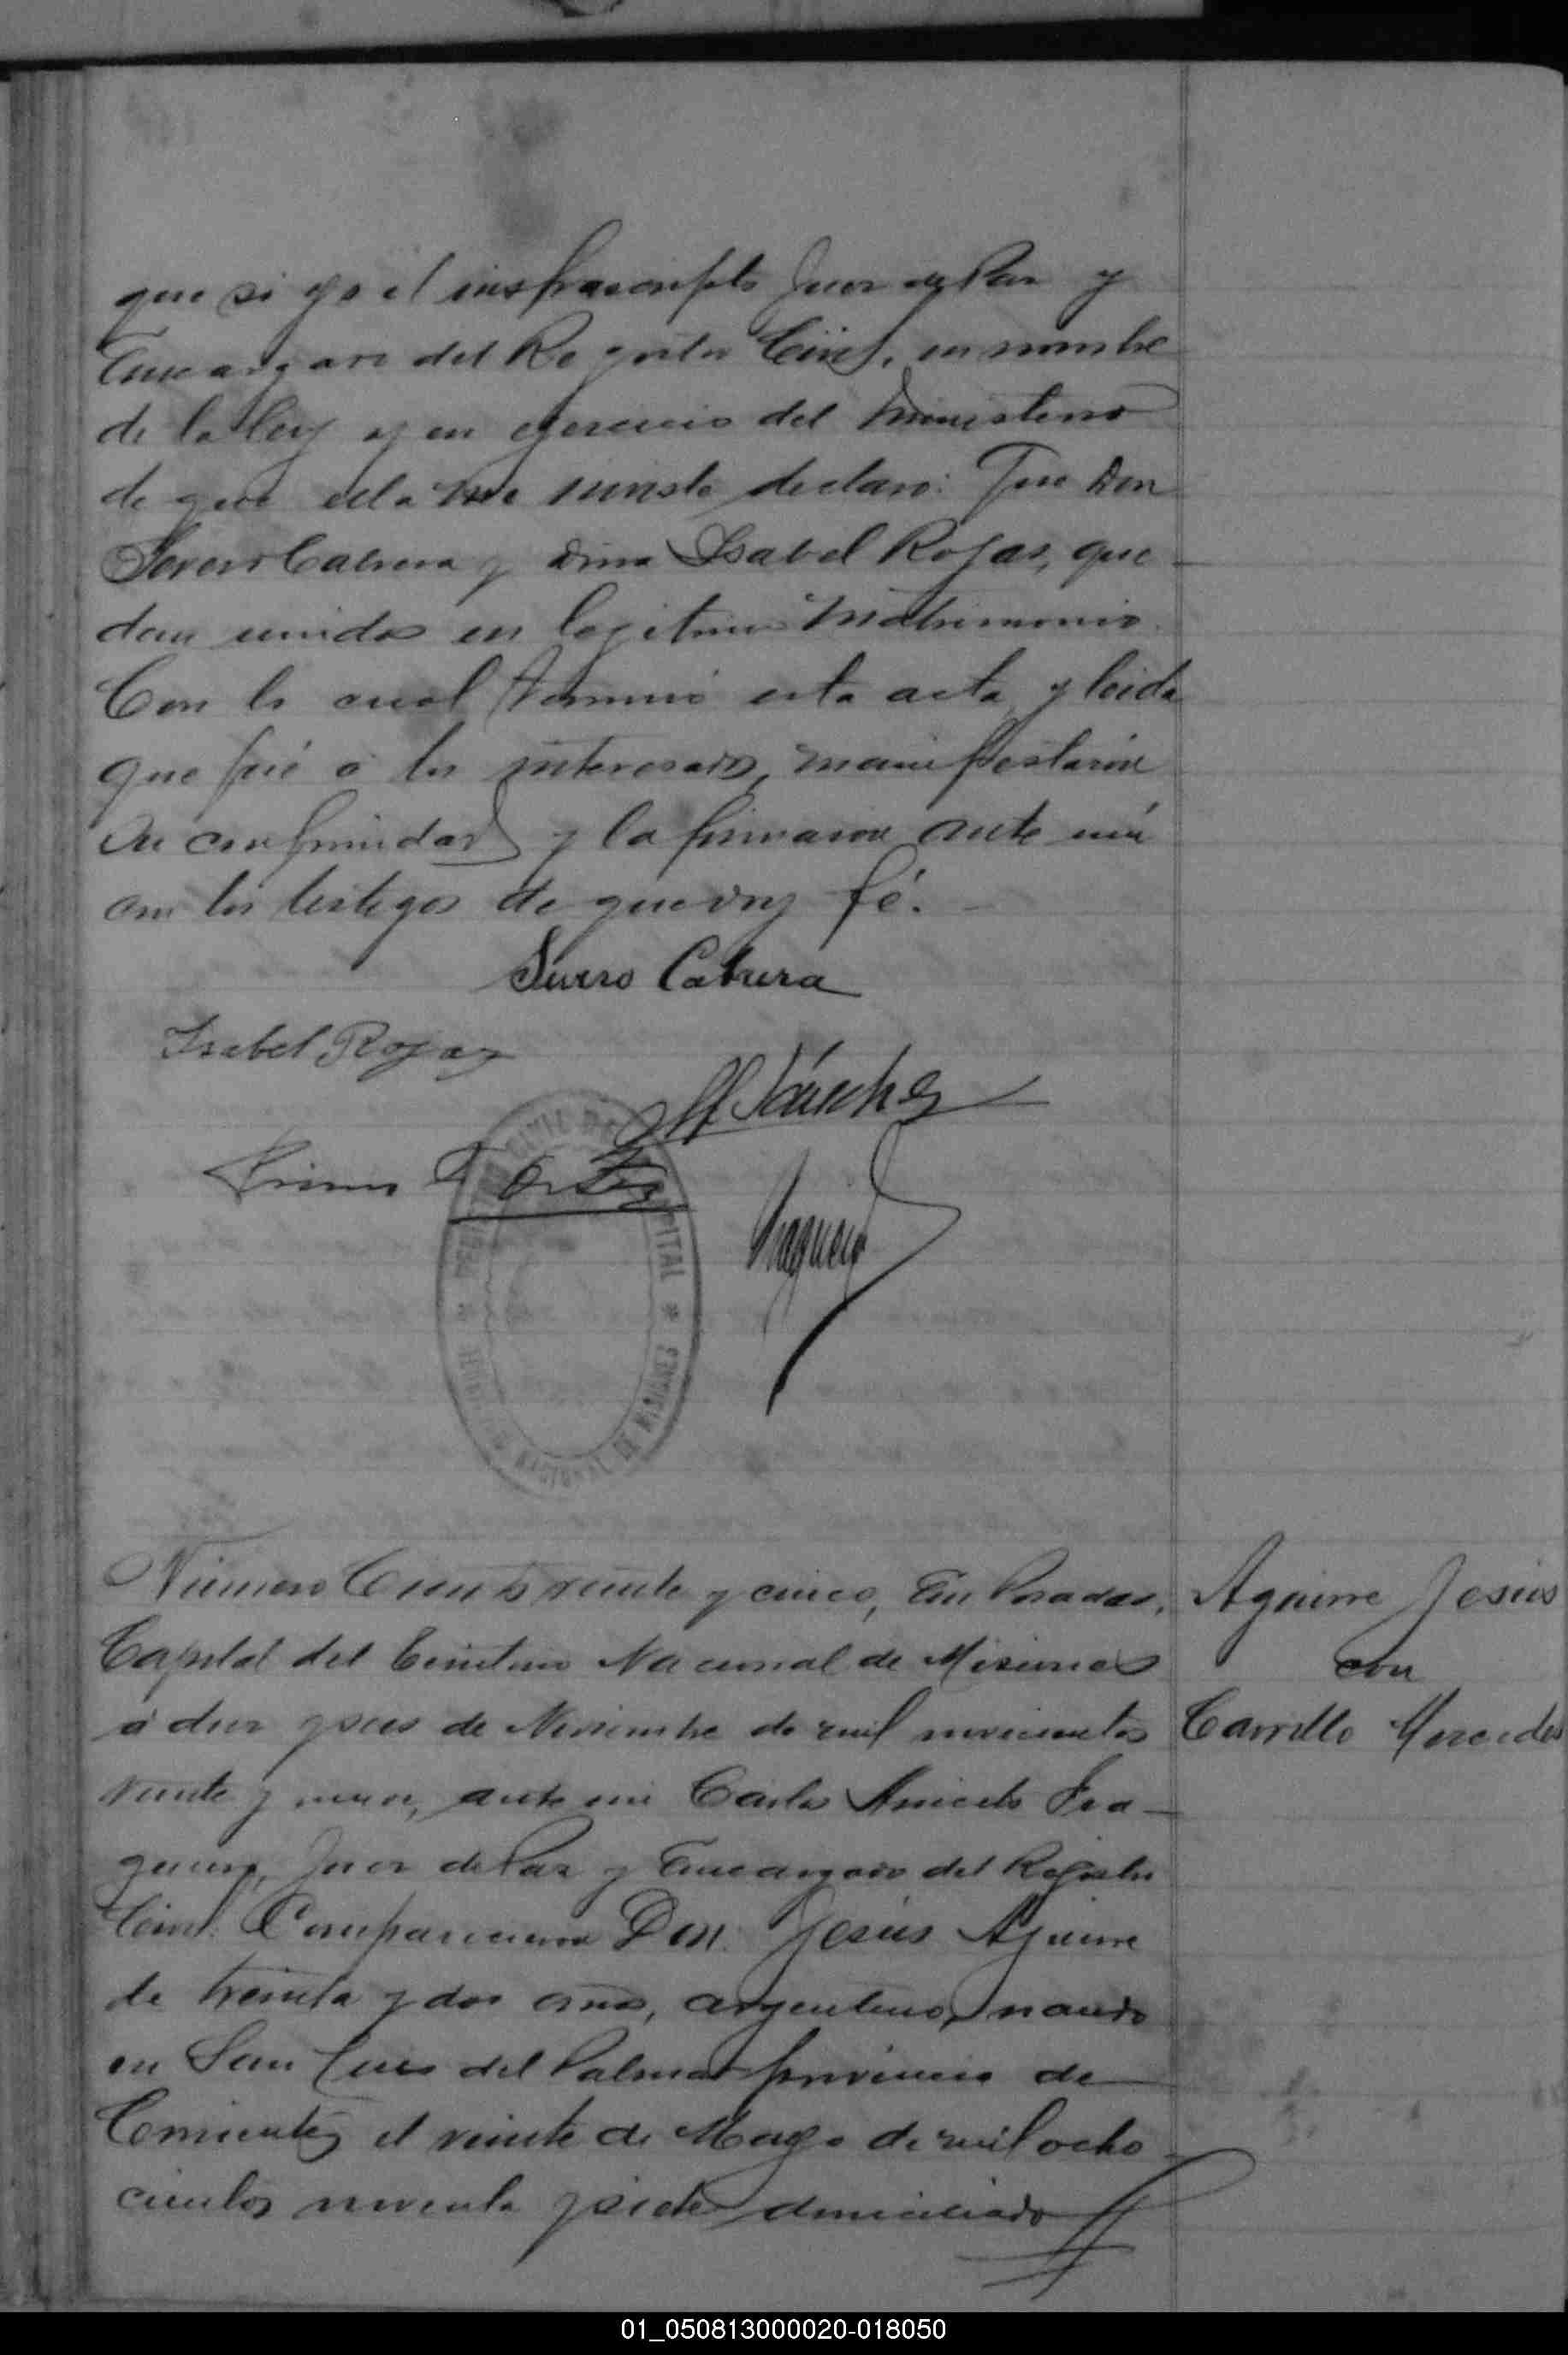 que si yo el infrascripto Juez de Paz y
Encargado del Registro Civil, en nombre
de la ley y en ejercicio del Ministerio
de que ella me inviste declaro: Que Don
Severo Cabrera y doña Isabel Rojas, que
dan unidos en legitimo Matrimonio.
Con lo cual terminó esta acta y leida
que fué á los interesados, manifestaron
su conformidad y la firmaron ante mi
con los testigos de que doy fé. —
Severo Cabrera
Isabel Rojas
Sánchez
REGISTRO CIVIL DE LA CAPITAL
TERRITORIO NACIONAL DE MISIONES
Número Ciento veinte y cinco, En Posadas,
Capital del Territorio Nacional de Misiones
á diez y seis de Noviembre de mil novecientos
veinte y nueve, ante mi Carlos Aniceto Fra-
gueiro, Juez de Paz y Encargado del Registro
Civil: Comparecieron Don Jesús Aguirre
de treinta y dos años, argentino, nacido
en San Luis del Palmar provincia de
Corrientes el veinte de Mayo de mil ocho
cientos noventa y siete domiciliado
Aguirre Jesús
con
Carrillo Mercedes
01_050813000020-018050